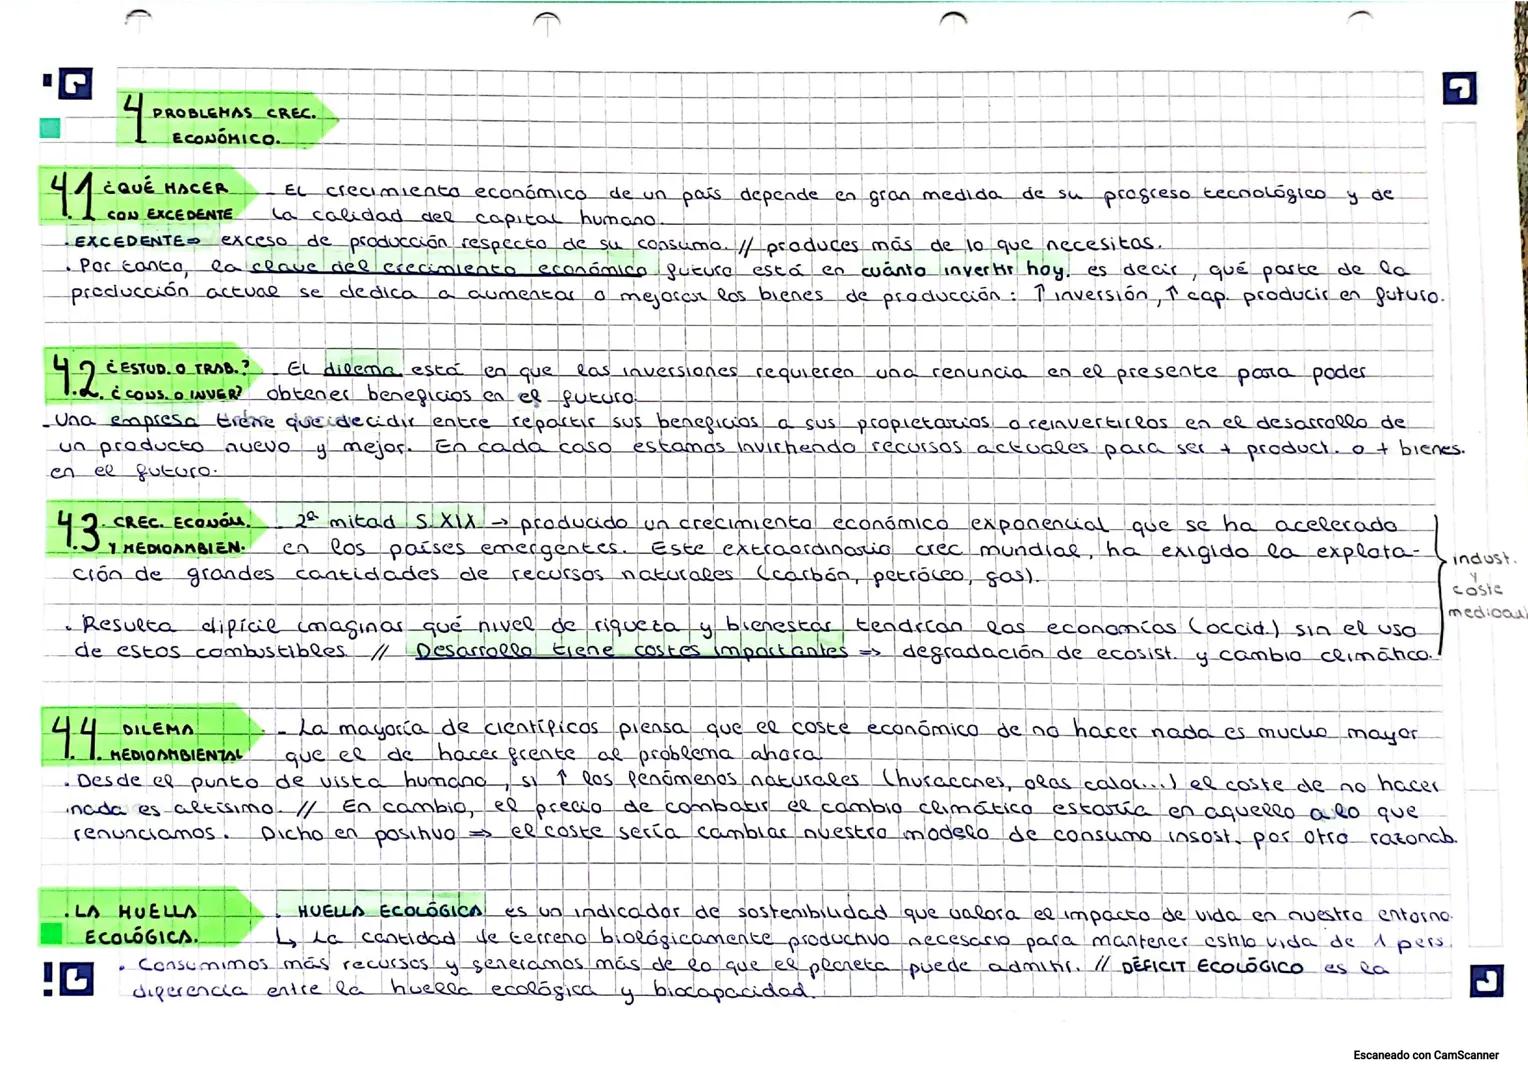 4 PROBLEMAS CREC.
ECONÓMICO.
4.1 ¿QUÉ HACER
CON EXCEDENTE
- El crecimiento económico de un país depende en gran medida de su progreso tecnológico y de
la calidad del capital humano.
· EXCEDENTE ⇒ exceso de producción respecto de su consumo. // produces más de lo que necesitas.
· Por tanto, la clave del crecimiento económico futuro está en cuánto invertir hoy. es decir, qué parte de la
producción actual se dedica a aumentar o mejorar los bienes de producción: ↑ inversión, ↑ cap. producir en futuro.
4.2. ¿ESTUD. O TRAB.?
¿CONS. O INVER?
- El dilema está en que las inversiones requieren una renuncia en el presente para poder
obtener beneficios en el futuro.
- Una empresa tiene que decidir entre repartir sus beneficios a sus propietarios o reinvertirlos en el desarrollo de
un producto nuevo y mejor. En cada caso estamos invirtiendo recursos actuales para ser + product. o + bienes.
en el futuro.
4.3. CREC. ECONÓM.
Y MEDIOAMBIEN.
- 2ª mitad S. XIX → producido un crecimiento económico exponencial que se ha acelerado
en los países emergentes. Este extraordinario crec mundial, ha exigido la explota-
ción de grandes cantidades de recursos naturales (carbón, petróleo, gas).
· Resulta difícil imaginar qué nivel de riqueza y bienestar tendrían las economías (occid.) sin el uso
de estos combustibles // Desarrollo tiene costes importantes ⇒ degradación de ecosist. y cambio climático.
indust.
y
coste
4.4. DILEMA
MEDIOAMBIENTAL
- La mayoría de científicos piensa que el coste económico de no hacer nada es mucho mayor
que el de hacer frente al problema ahora
· Desde el punto de vista humano, si ↑ los fenómenos naturales (huracanes, olas calor...) el coste de no hacer
nada es altísimo. // En cambio, el precio de combatir el cambio climático estaría en aquello a lo que
renunciamos. Dicho en positivo ⇒ el coste sería cambiar nuestro modelo de consumo insost. por otro razonab.
· LA HUELLA
ECOLÓGICA.
· HUELLA ECOLÓGICA es un indicador de sostenibilidad que valora el impacto de vida en nuestro entorno.
↳ La cantidad de terreno biológicamente productivo necesario para mantener estilo vida de 1 pers.
· Consumimos más recursos y generamos más de lo que el planeta puede admitir. // DÉFICIT ECOLÓGICO es la
diferencia entre la huella ecológica y biocapacidad.
Escaneado con CamScanner